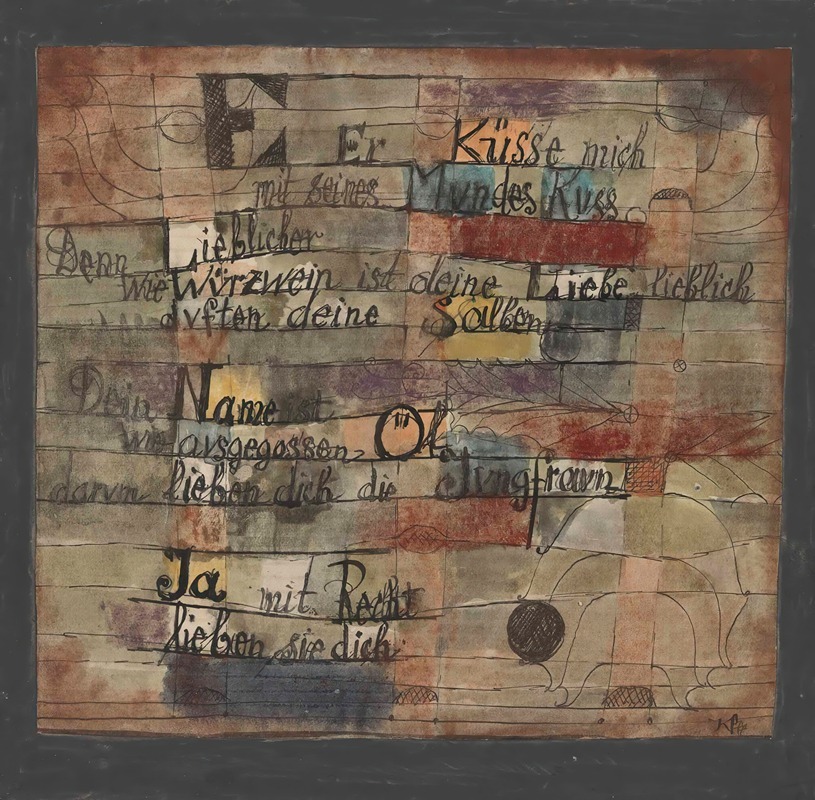 E Er Küsse mich
mit seines Mundes Kuss
Denn Lieblicher
wie Würzwein ist deine Liebe lieblich
duften deine Salben
Dein Name ist
wie ausgegossen Öl
darum lieben dich die Jungfraun
Ja mit Recht
lieben sie dich
Klee